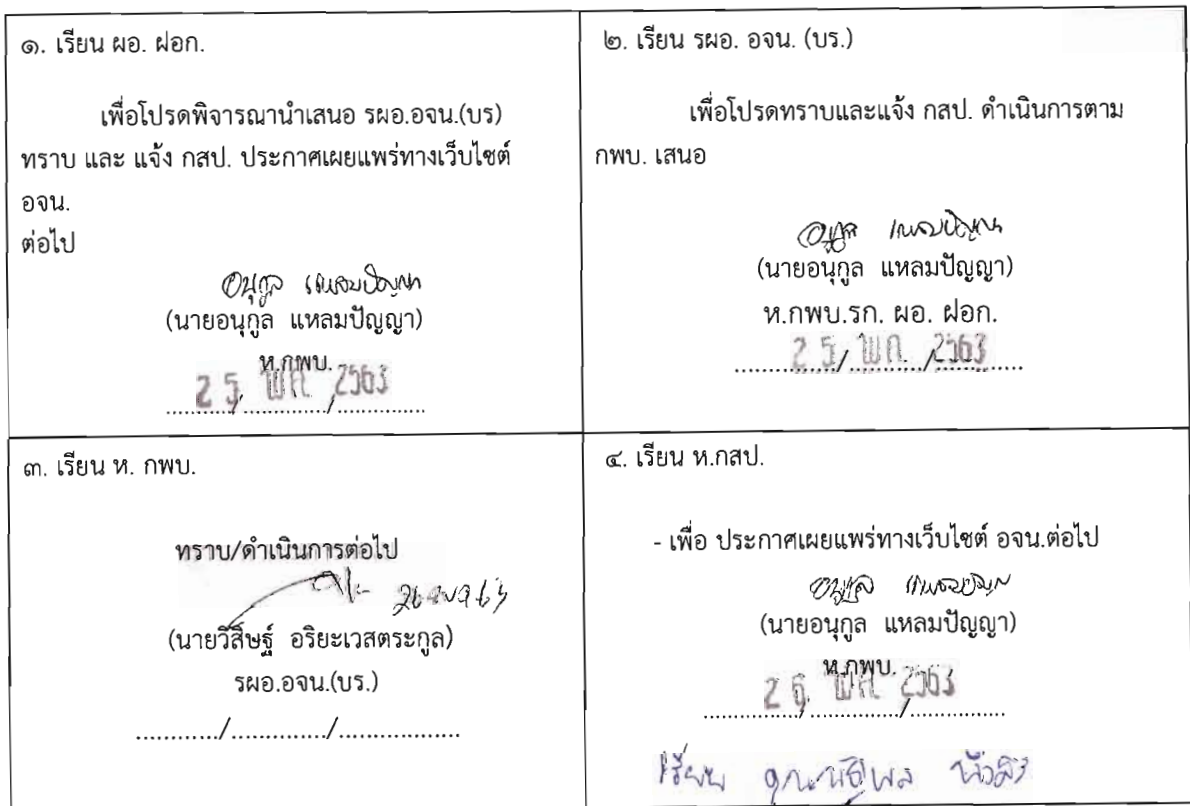 ๑. เรียน ผอ. ฝอก.
เพื่อโปรดพิจารณานำเสนอ รผอ.อจน.(บร)
ทราบ และ แจ้ง กสป. ประกาศเผยแพร่ทางเว็บไซต์
อจน.
ต่อไป
อนุกูล แหลมปัญญา
(นายอนุกูล แหลมปัญญา)
ห.กพบ.
25/ พ.ค. /2563
๒. เรียน รผอ. อจน. (บร.)
เพื่อโปรดทราบและแจ้ง กสป. ดำเนินการตาม
กพบ. เสนอ
อนุกูล แหลมปัญญา
(นายอนุกูล แหลมปัญญา)
ห.กพบ.รก. ผอ. ฝอก.
25/ พ.ค. /2563
๓. เรียน ห. กพบ.
ทราบ/ดำเนินการต่อไป
(นายวิสิษฐ์ อริยะเวสตระกูล)
รผอ.อจน.(บร.)
............/............../.................
๔. เรียน ห.กสป.
- เพื่อ ประกาศเผยแพร่ทางเว็บไซต์ อจน.ต่อไป
อนุกูล แหลมปัญญา
(นายอนุกูล แหลมปัญญา)
ห.กพบ.
26/ พ.ค. /2563
เรียน คุณ